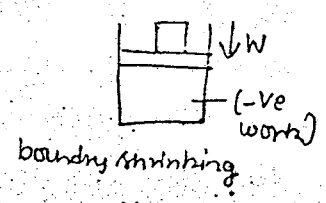 ↓W
(-ve
work)
boundry shrinking